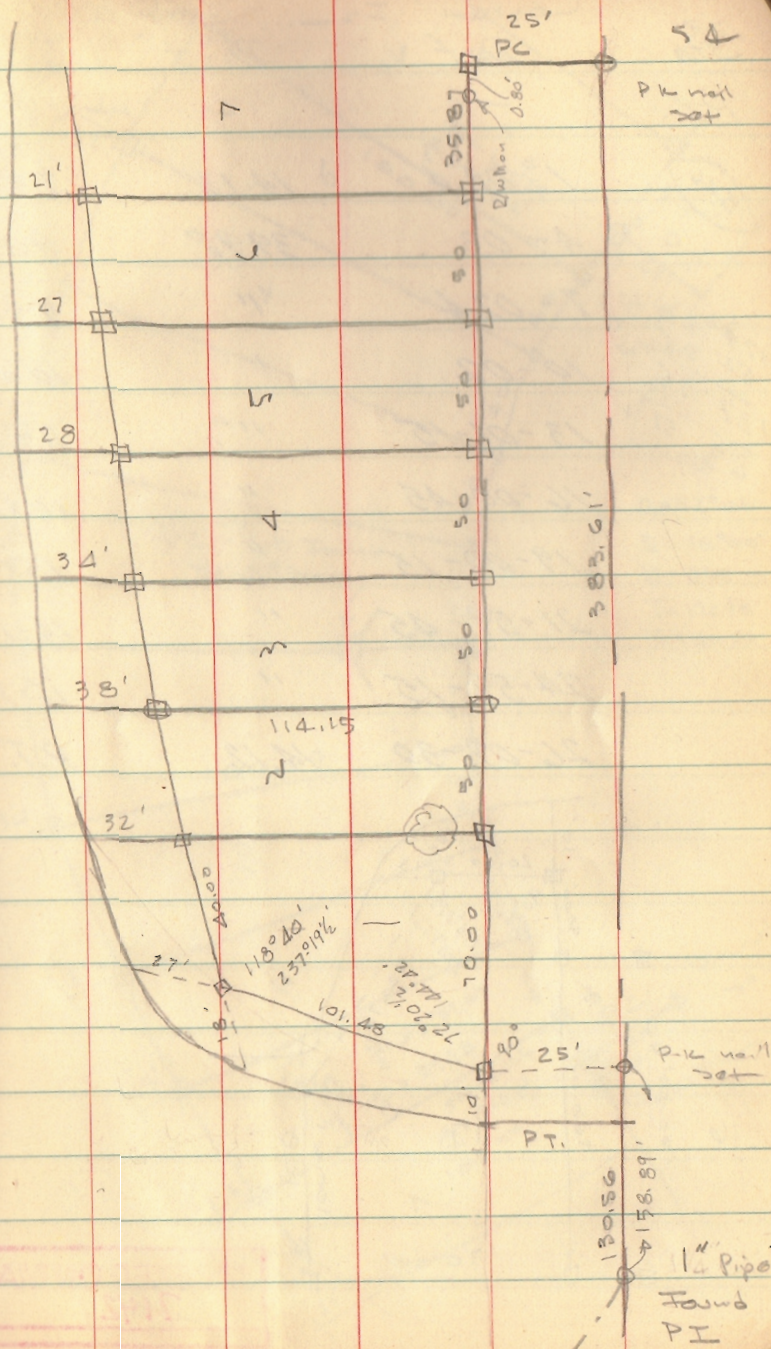 25'
54
PC
PK nail
set
0.80'
7
35.87
R/W Mon
21'
6
50
27
5
50
28
4
50
383.61'
34'
3
50
38'
114.15
2
50
32'
40.00
1
70.00
118° 40'
237° 19 1/2'
27'
72° 20 1/2'
144° 42'
101.48
18'
25'
P-K nail
set
10'
PT.
130.56
158.89'
1" Pipe
Found
PI